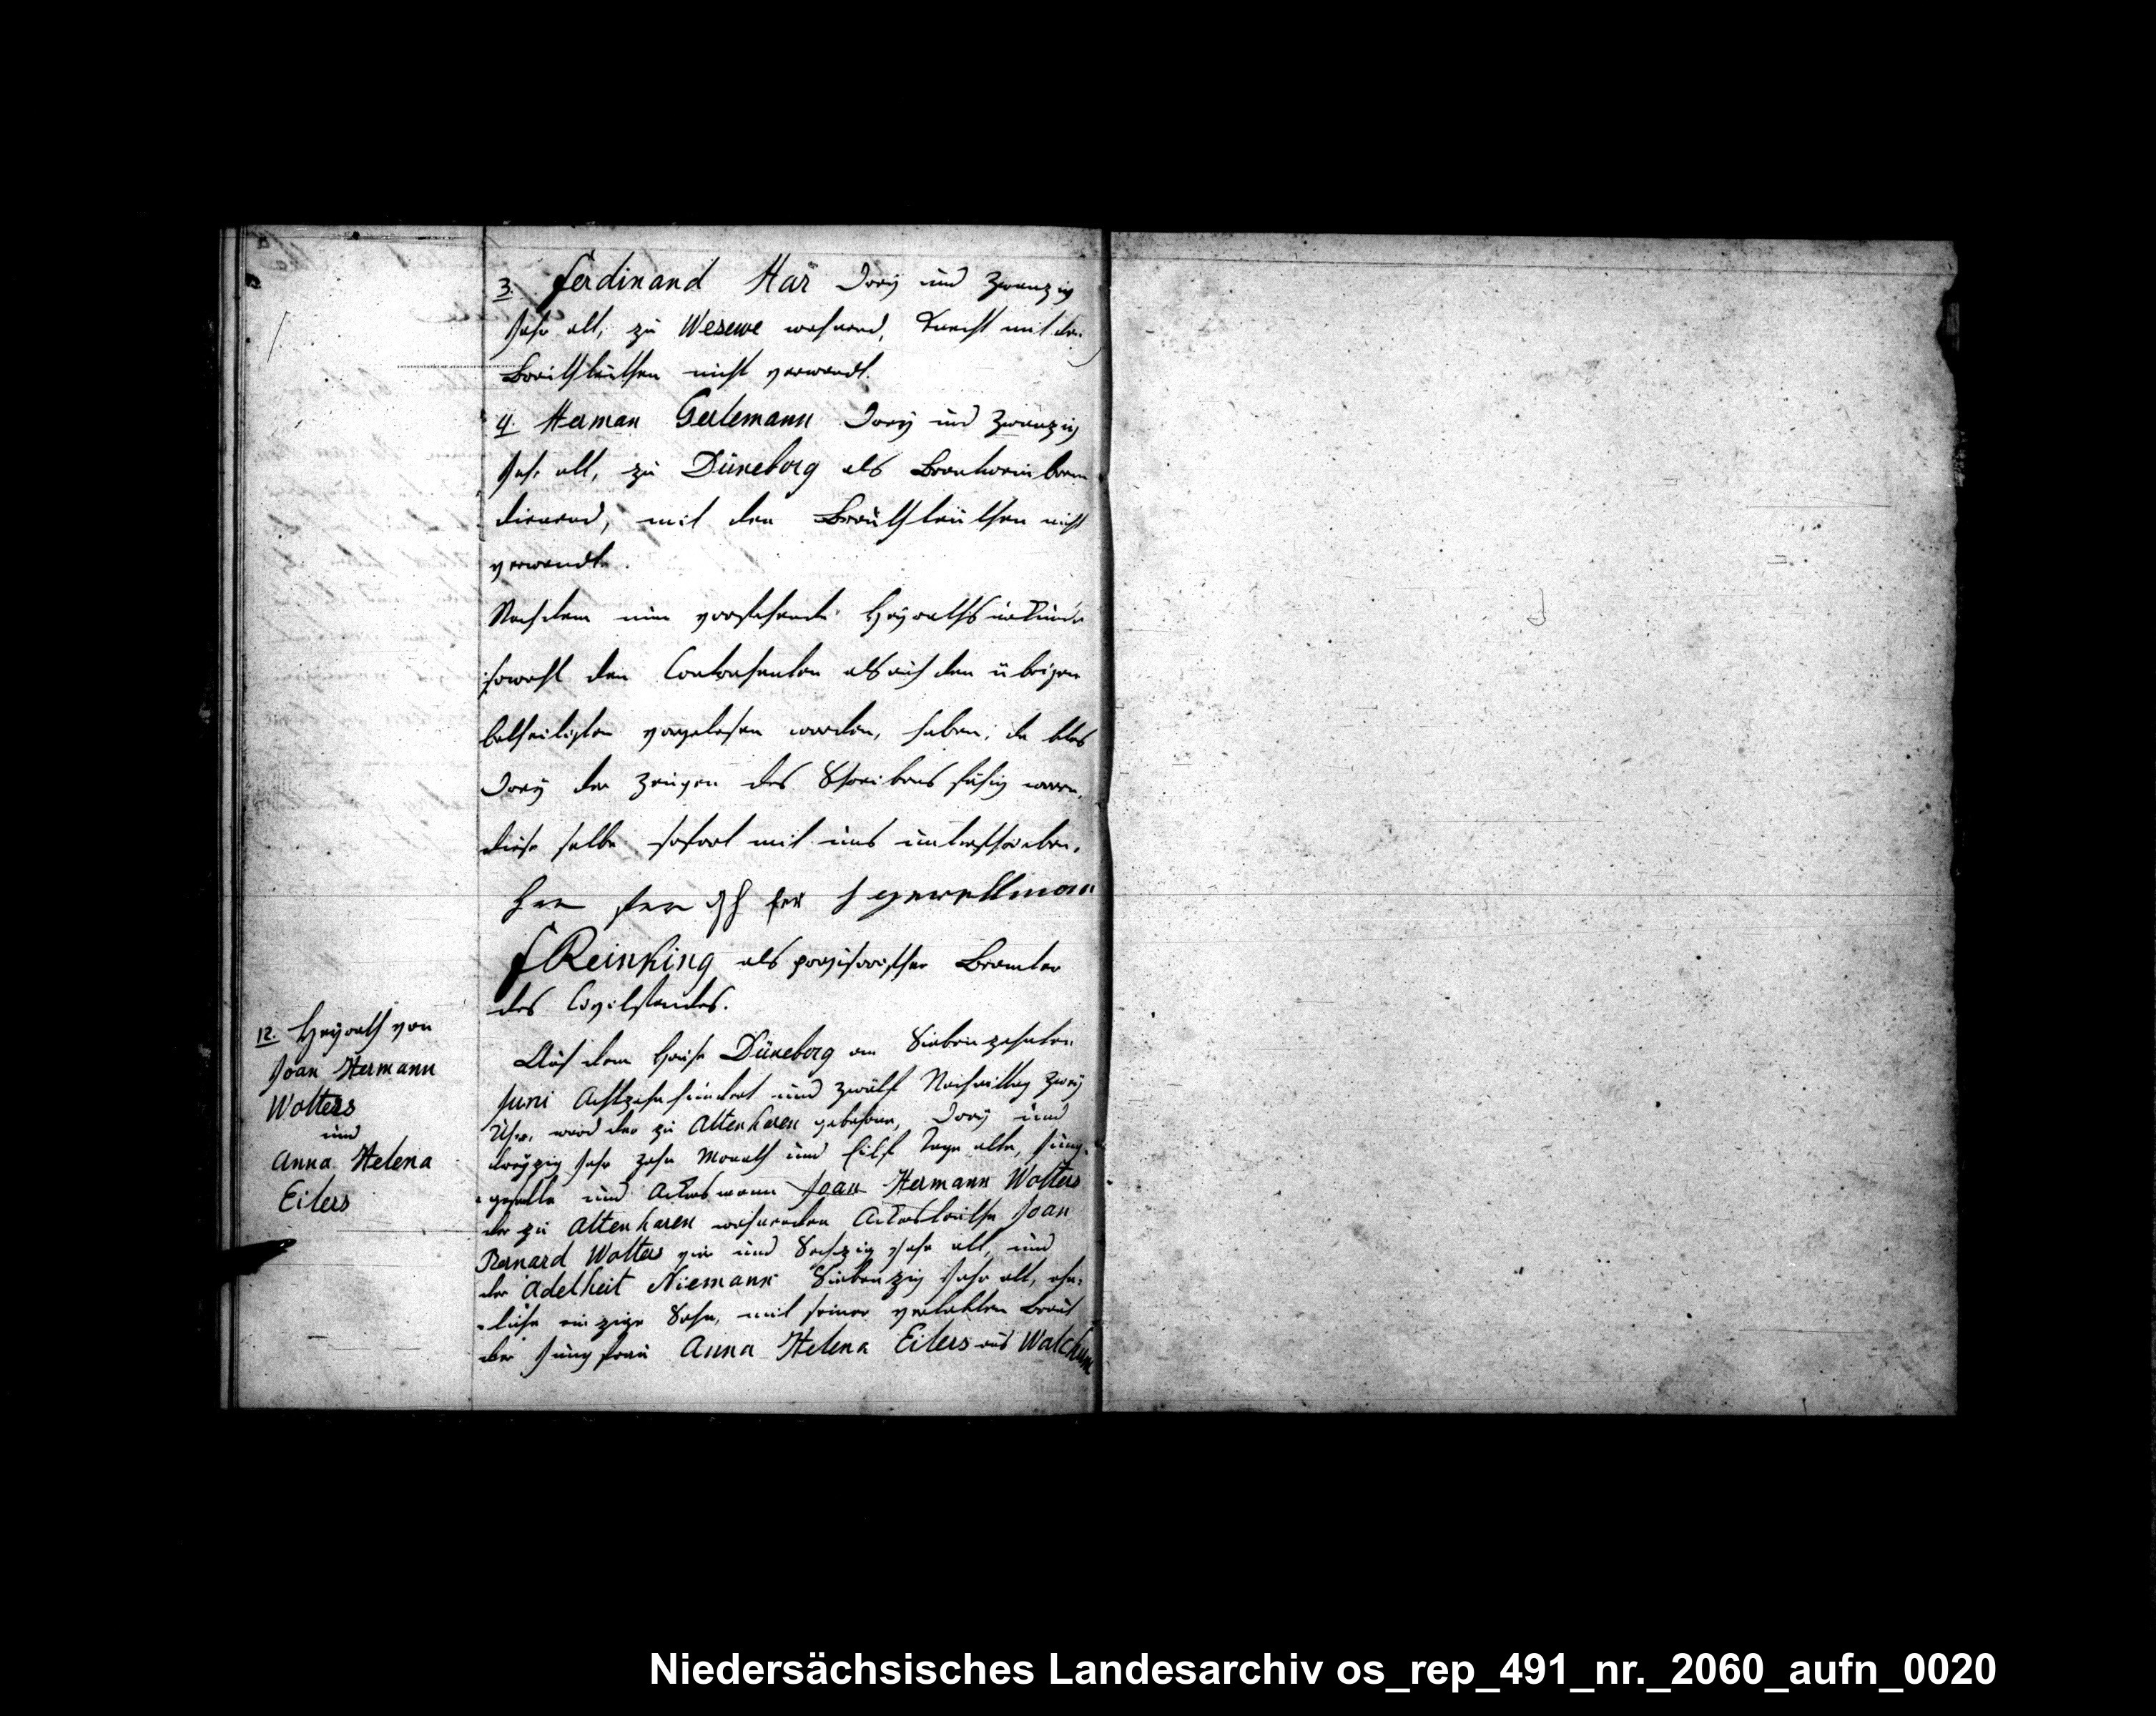 3. Ferdinand Har Drey und Zwanzig
Jahr alt, zu Wesewe wohnend, Knecht mit den
Brauthleuthen nicht verwandt.
4. Herman Gerlemann Drey und Zwanzig
Jahr alt, zu Düneborg als
dienend, mit den Brauthleuthen nicht
verwandt.
Nachdem nun vorstehende Heyraths urkunde
sowohl den Contrahenten als auch den übrigen
betheiligten vorgelesen worden, haben, da blos
Drey der Zeugen des Schreibens fähig waren,
diese selbe sofort mit uns unterschrieben.
F Reinking als provisorischer Beamter
des Civilstandes.
12. Heyrath von
Joan Hermann
Wolters
und
Anna Helena
Eilers
Auf dem Hause Düneborg am Siebenzehnten
Juni Achtzehnhundert und zwölf Nachmittag Zwey
Uhr, ward der zu Altenharen gebohrne, Drey und
dreyzig Jahr zehn Monath und Eilf Tage alte, Jung-
geselle und Ackersmann Joan Hermann Wolters
der zu Altenharen wohnenden Ackersleuthe Joan
Bernard Wolters vier und Sechzig Jahr alt, und
der Adelheit Niemann Siebenzig Jahr alt, ehe-
liche einzige Sohn, mit seiner verlobten Braut
der Jungfrau Anna Helena Eilers aus Walchum
Niedersächsisches Landesarchiv os_rep_491_nr._2060_aufn_0020